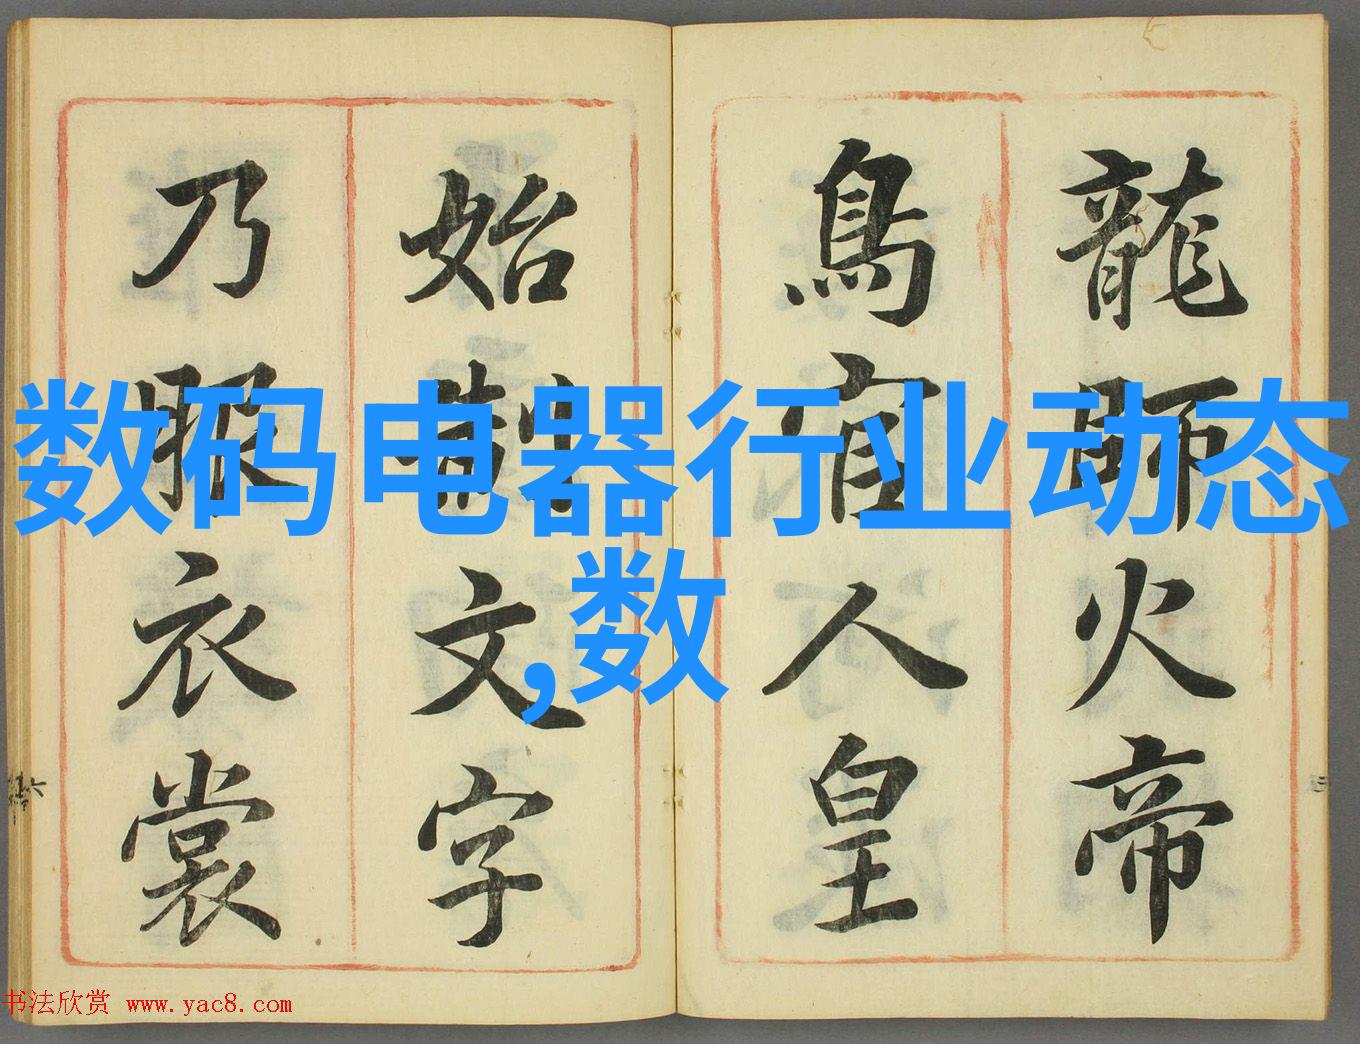 龍師火帝
鳥官人皇
始制文字
乃服衣裳
数码电器行业动态
,数
书法欣赏 www.yac8.com